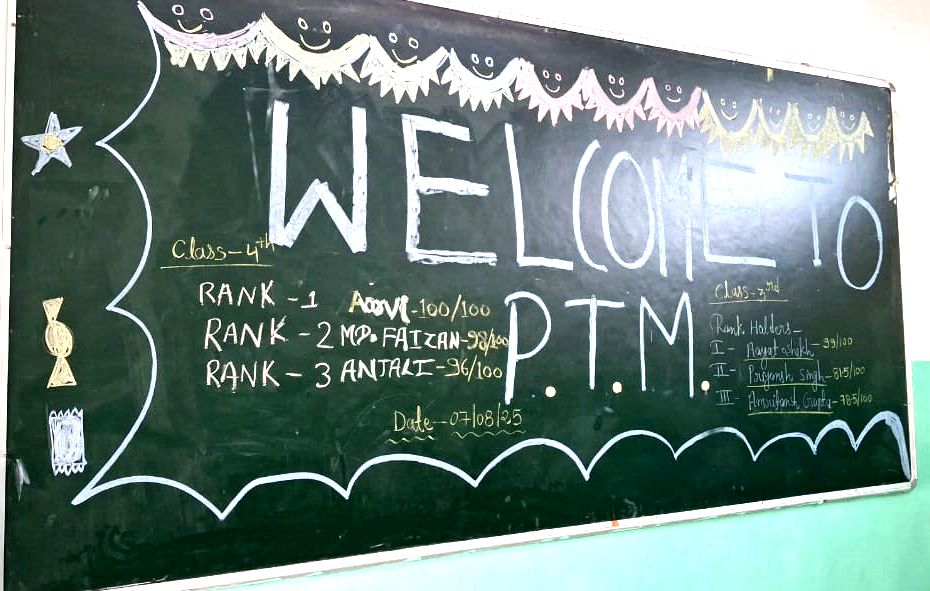 WELCOME TO
P.T.M.
Class-4th
RANK -1 -100/100
RANK - 2 MD. FAIZAN-98/100
RANK - 3 ANJALI-96/100
Date-07/08/25
Class-3rd
Rank Holders-
I - Aayat -99/100
II - Priyansh Singh-81.5/100
III - Gupta-78.5/100